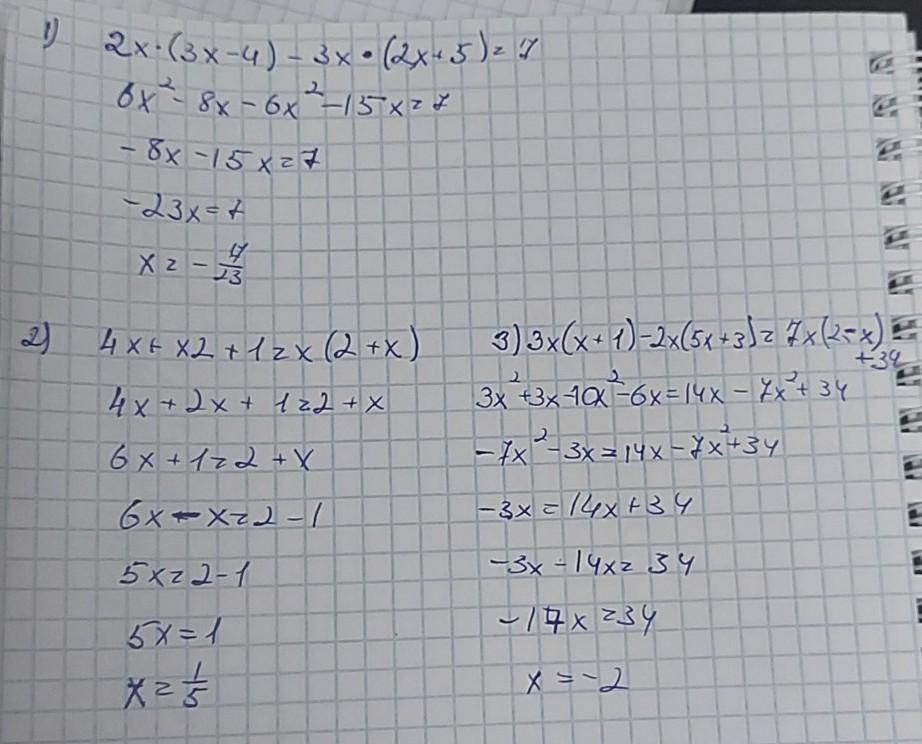 1)
2x·(3x-4)-3x·(2x+5)=7
6x²-8x-6x²-15x=7
-8x-15x=7
-23x=7
x=-7/23
2)
4x+x2+1=x(2+x)
4x+2x+1=2+x
6x+1=2+x
6x-x=2-1
5x=2-1
5x=1
x=1/5
3) 3x(x+1)-2x(5x+3)=7x(2-x)
+34
3x²+3x-10x²-6x=14x-7x²+34
-7x²-3x=14x-7x²+34
-3x=14x+34
-3x-14x=34
-17x=34
x=-2